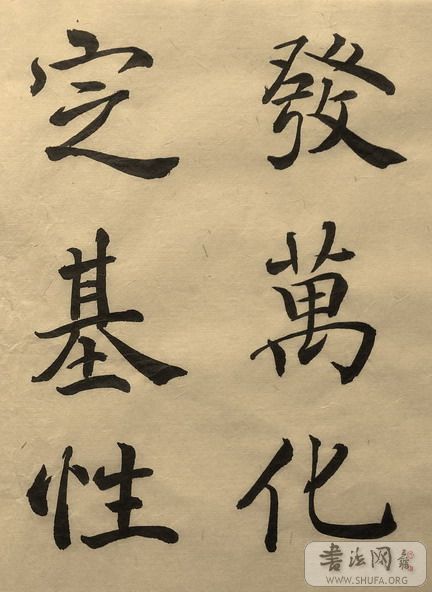 發萬化
定基性
書法网
WWW.SHUFA.ORG